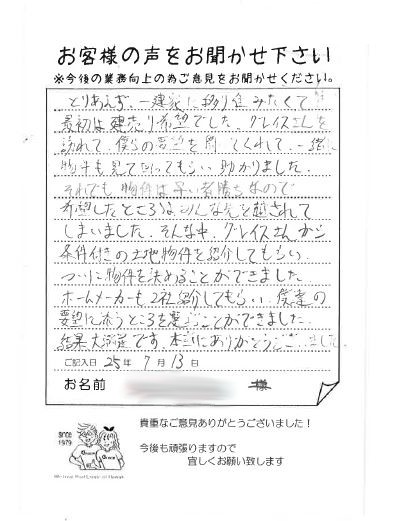 お客様の声をお聞かせ下さい
※今後の業務向上の為ご意見をお聞かせください。
とりあえず、一建家に移り住みたくて
最初は建売り希望でした。グレイスさんを
訪れて、僕らの要望を聞いてくれて、一緒に
物件も見て回ってもらい助かりました。
それでも物件は早い者勝ちなので
希望したところはみんな先を越されて
しまいました。そんな中、グレイスさんから
条件付きの土地物件を紹介してもらい、
ついに物件を決めることができました。
ホームメーカーも2社紹介してもらい、僕達の
要望に添うところを選ぶことができました。
結果大満足です。本当にありがとうございました
ご記入日 25年 7月 13日
お名前 様
貴重なご意見ありがとうございました！
今後も頑張りますので
宜しくお願い致します
since
1979